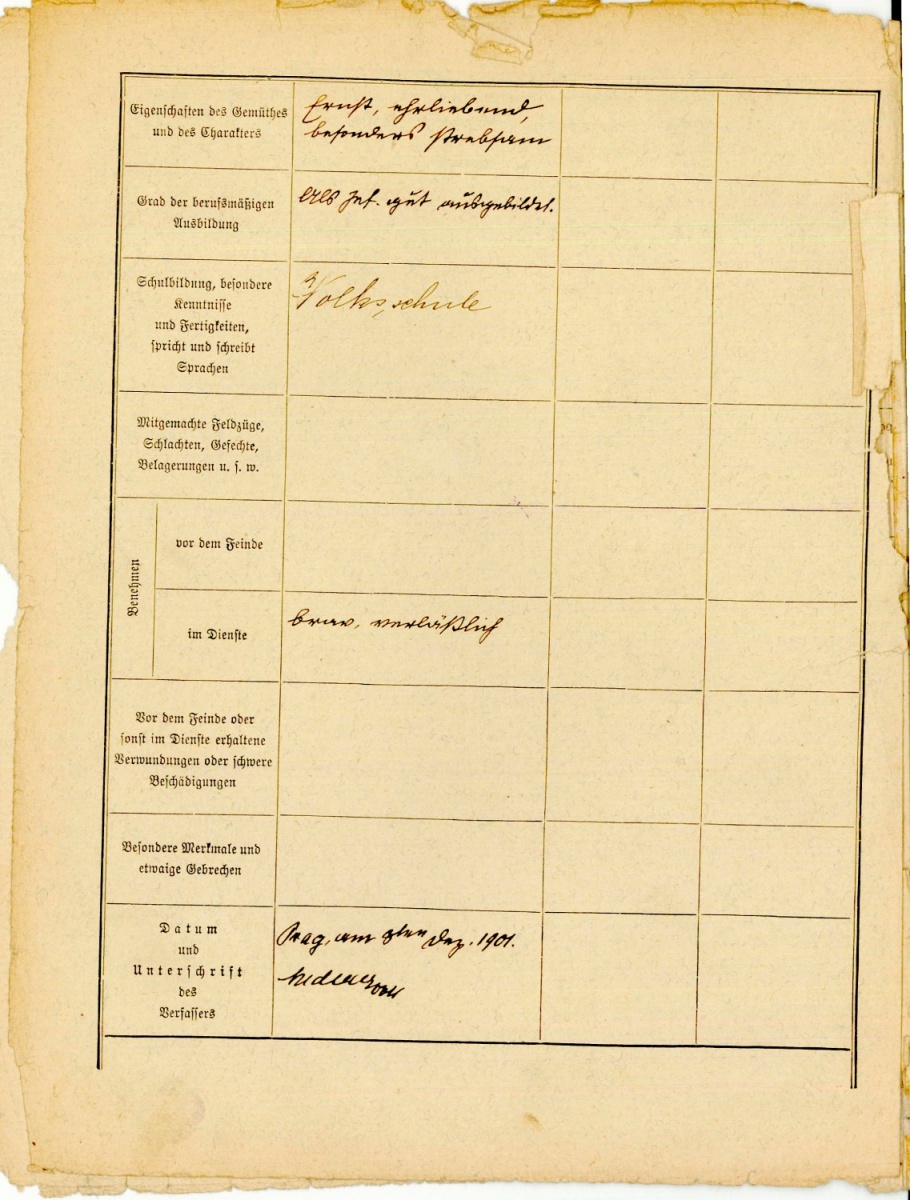 Eigenschaften des Gemüthes
und des Charakters
Ernst, ehrliebend,
besonders strebsam
Grad der berufsmäßigen
Ausbildung
Als Inf. gut ausgebildet.
Schulbildung, besondere
Kenntnisse
und Fertigkeiten,
spricht und schreibt
Sprachen
Volksschule
Mitgemachte Feldzüge,
Schlachten, Gefechte,
Belagerungen u. s. w.
Benehmen
vor dem Feinde
im Dienste
brav, verläßlich
Vor dem Feinde oder
sonst im Dienste erhaltene
Verwundungen oder schwere
Beschädigungen
Besondere Merkmale und
etwaige Gebrechen
Datum
und
Unterschrift
des
Verfassers
Prag, am 8ten Dez. 1901.